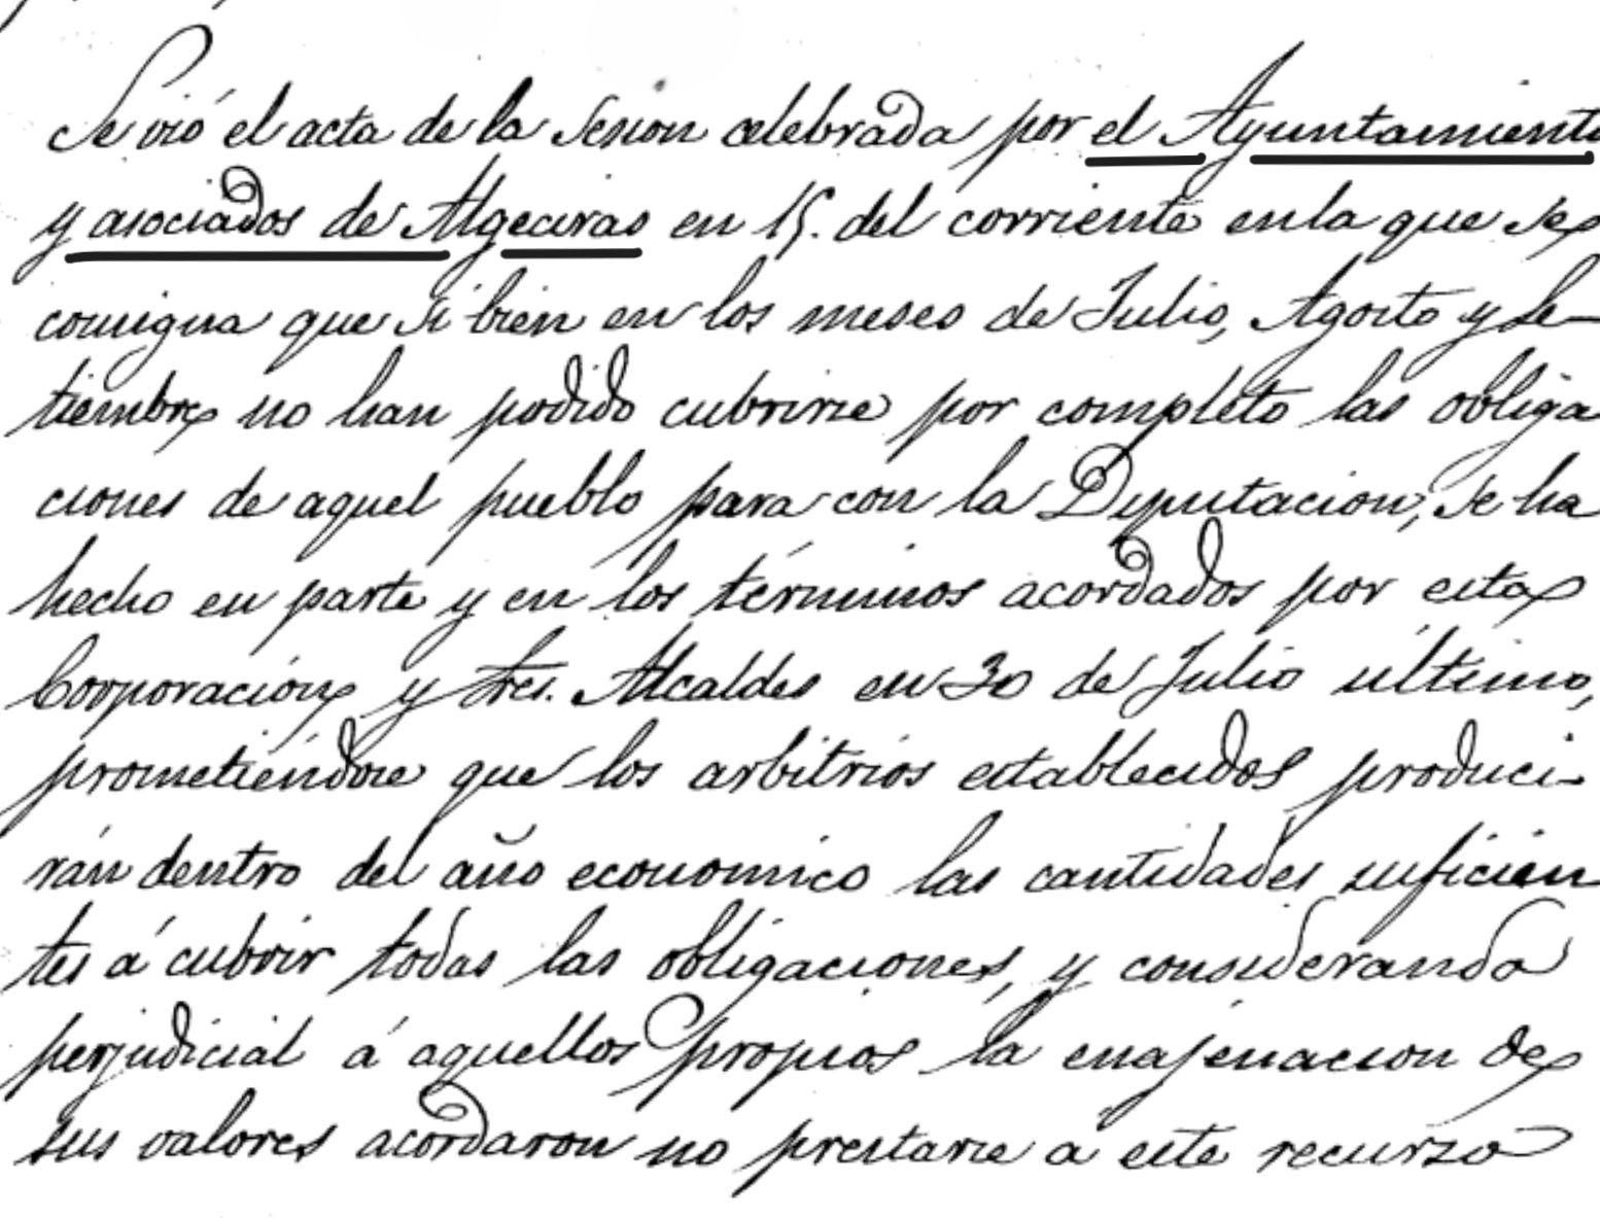 Se vió el acta de la sesion celebrada por el Ayuntamiento
y asociados de Algeciras en 15. del corriente en la que se
consigna que si bien en los meses de Julio, Agosto y Se-
tiembre no han podido cubrirse por completo las obliga
ciones de aquel pueblo para con la Diputacion, se ha
hecho en parte y en los términos acordados por esta
Corporación y Sres. Alcaldes en 30 de Julio último,
prometiéndose que los arbitrios establecidos produci-
rán dentro del año economico las cantidades suficien
tes á cubrir todas las obligaciones, y considerando
perjudicial á aquellos propios la enajenacion de
sus valores acordaron no prestarse á este recurso